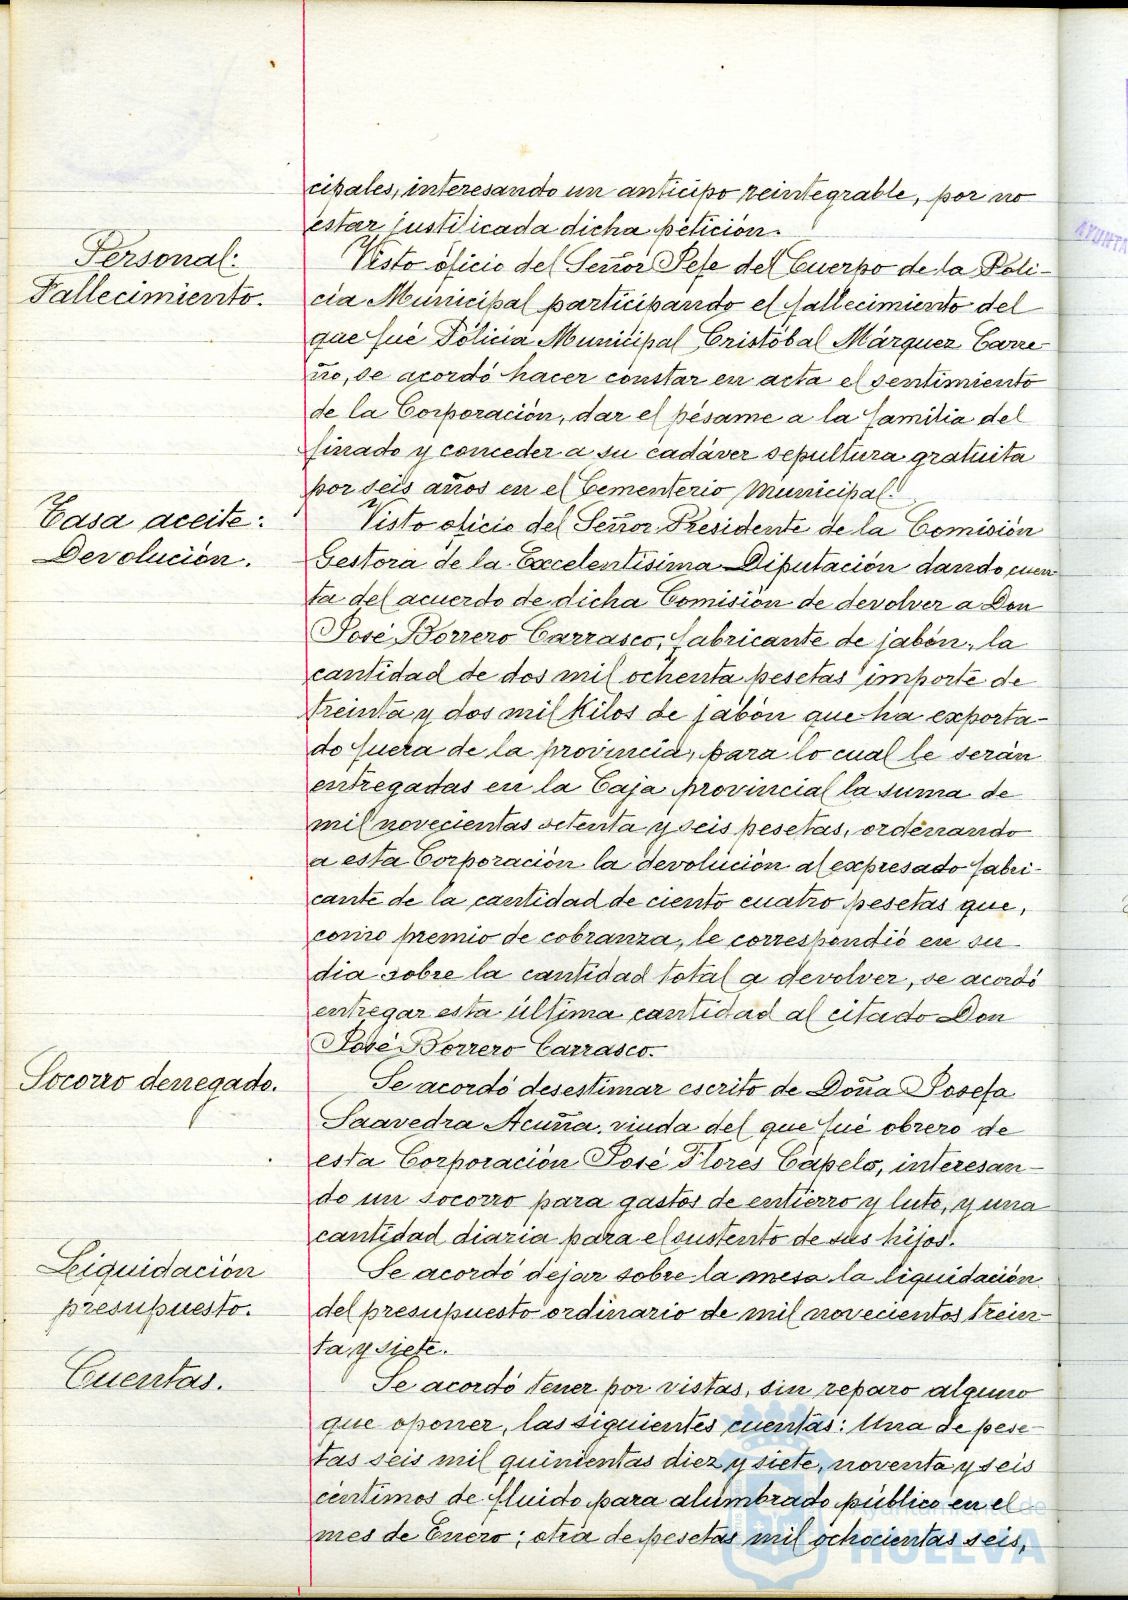 cipales, interesando un anticipo reintegrable, por no
estar justificada dicha petición.
Personal:
Fallecimiento.
Visto oficio del Señor Jefe del Cuerpo de la Poli-
cía Municipal participando el fallecimiento del
que fué Policía Municipal Cristóbal Márquez Carre-
ño, se acordó hacer constar en acta el sentimiento
de la Corporación, dar el pésame a la familia del
finado y conceder a su cadáver sepultura gratuita
por seis años en el Cementerio Municipal.
Tasa aceite:
Devolución.
Visto oficio del Señor Presidente de la Comisión
Gestora de la Excelentísima Diputación dando cuen-
ta del acuerdo de dicha Comisión de devolver a Don
José Borrero Carrasco, fabricante de jabón, la
cantidad de dos mil ochenta pesetas importe de
treinta y dos mil Kilos de jabón que ha exporta-
do fuera de la provincia, para lo cual le serán
entregadas en la Caja provincial la suma de
mil novecientas setenta y seis pesetas, ordenando
a esta Corporación la devolución al expresado fabri-
cante de la cantidad de ciento cuatro pesetas que,
como premio de cobranza, le correspondió en su
dia sobre la cantidad total a devolver, se acordó
entregar esta última cantidad al citado Don
José Borrero Carrasco.
Socorro denegado.
Se acordó desestimar escrito de Doña Josefa
Saavedra Acuña, viuda del que fué obrero de
esta Corporación José Flores Capelo, interesan-
do un socorro para gastos de entierro y luto, y una
cantidad diaria para el sustento de sus hijos.
Liquidación
presupuesto.
Se acordó dejar sobre la mesa la liquidación
del presupuesto ordinario de mil novecientos trein-
ta y siete.
Cuentas.
Se acordó tener por vistas, sin reparo alguno
que oponer, las siguientes cuentas: Una de pese-
tas seis mil quinientas diez y siete, noventa y seis
céntimos de fluido para alumbrado público en el
mes de Enero; otra de pesetas mil ochocientas seis,
Ayuntamiento de
HUELVA
AYUNTA